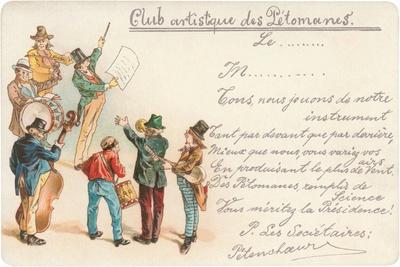 Club artistique des Pétomanes.
Le ........
M..........
Tous, nous jouons de notre
instrument
Tant par devant que par derrière,
Mieux que nous, vous variez vos
airs
En produisant le plus de vent.
Des Pétomanes remplis de
Science
Vous méritez la Présidence!
P. Les Sociétaires:
Pétenchœur